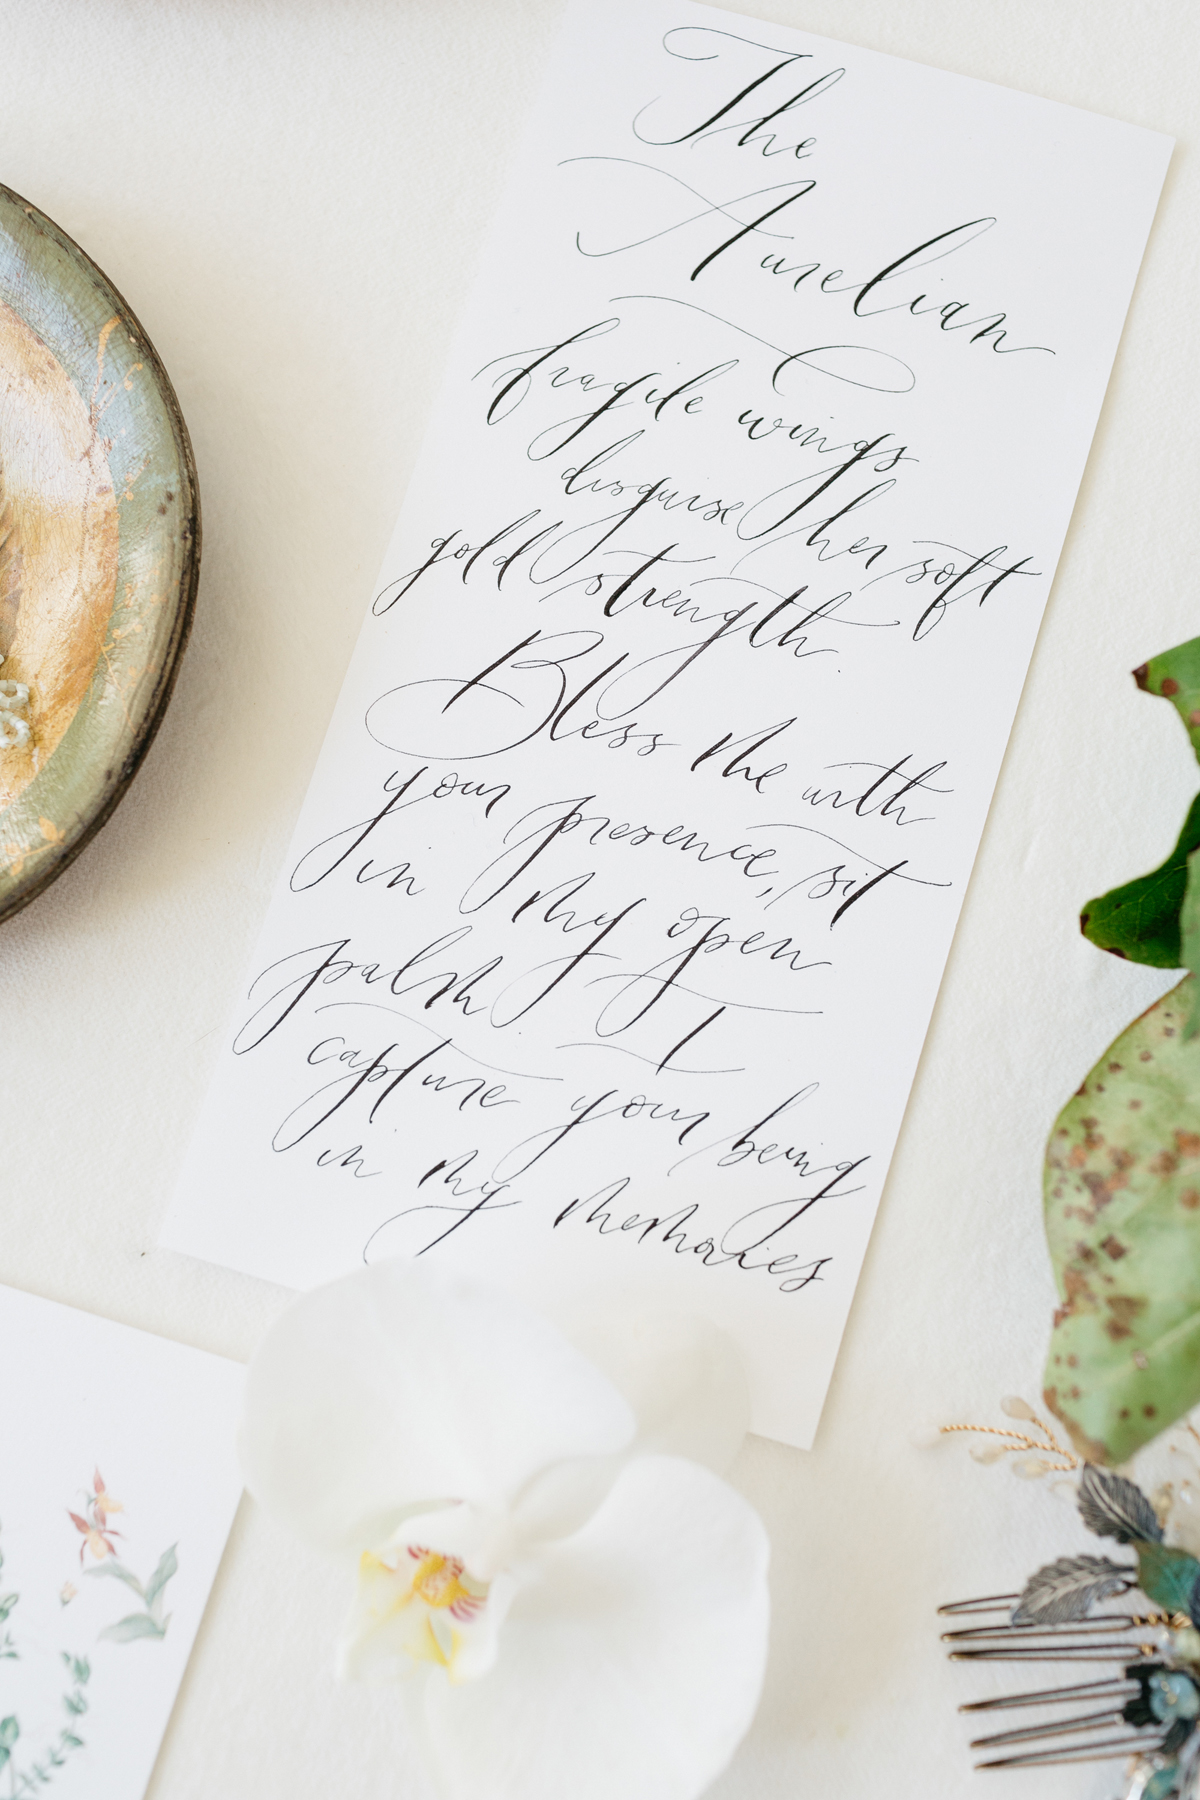 The
Aurelian
fragile wings
disguise her soft
gold strength.
Bless me with
your presence, sit
in my open
palm. I
capture your being
in my memories